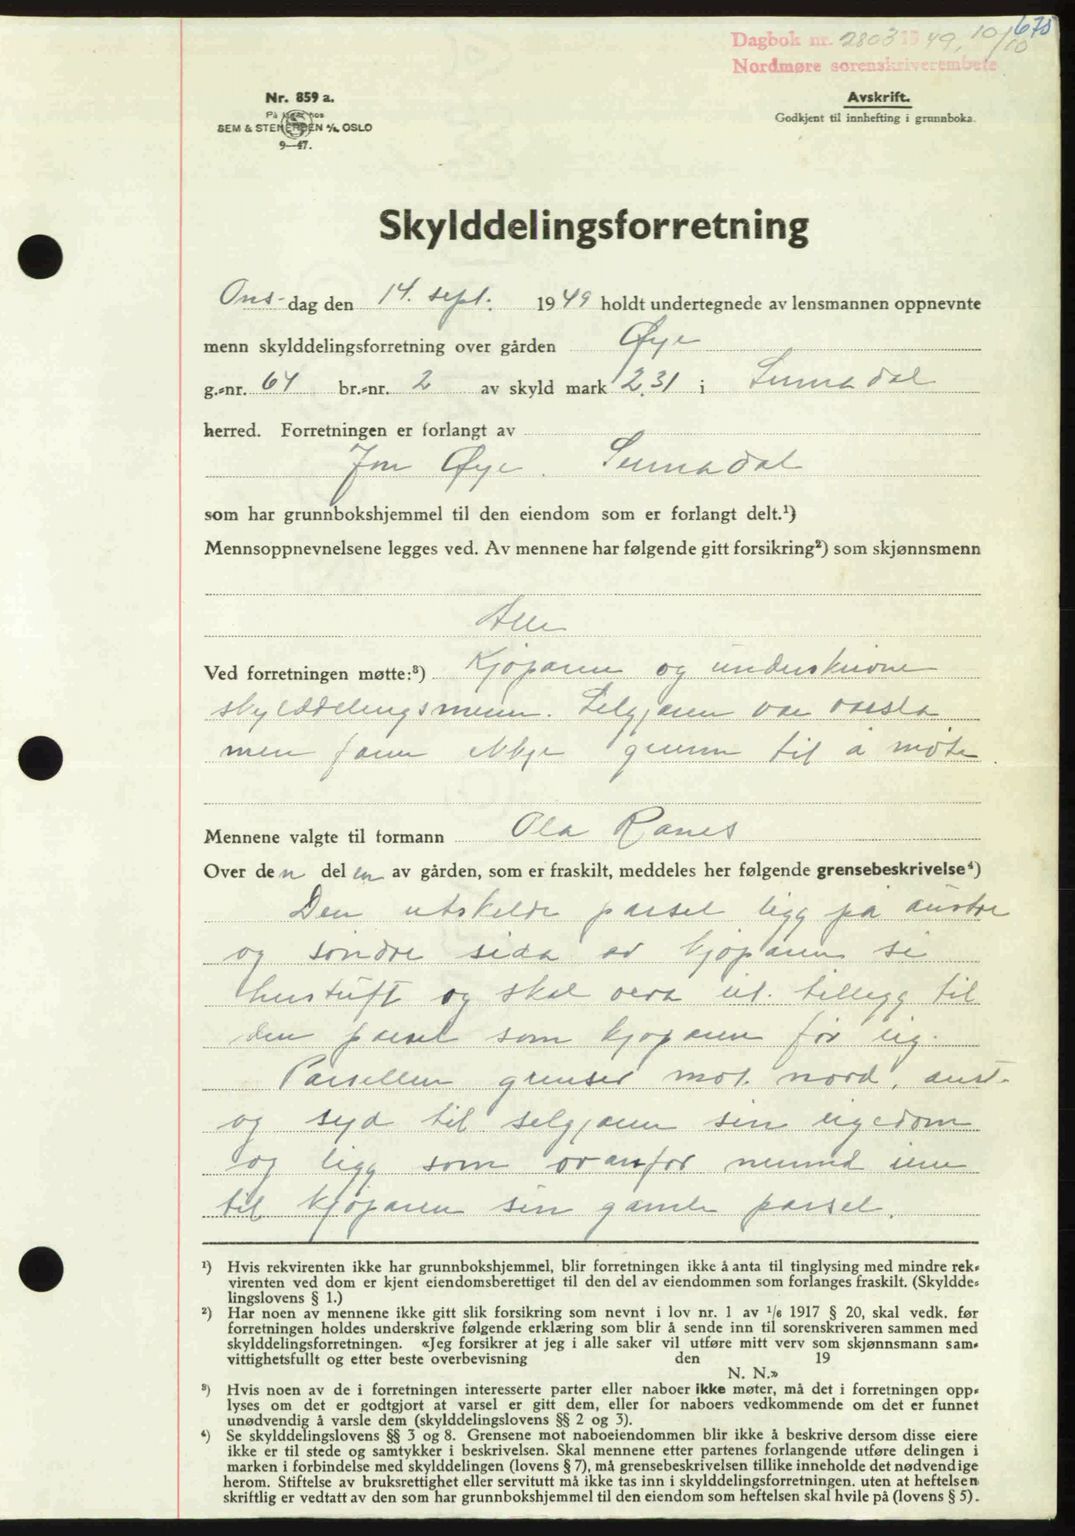 675
Dagbok nr. 2803 1949, 10/10
Nordmøre sorenskriverembete
Nr. 859 a.
På lager hos
SEM & STENERSEN A/S, OSLO
9—47.
Avskrift.
Godkjent til innhefting i grunnboka.
Skylddelingsforretning
Ons-dag den 14. sept. 1949 holdt undertegnede av lensmannen oppnevnte
menn skylddelingsforretning over gården Øye
g.-nr. 64 br.-nr. 2 av skyld mark 2,31 i Surnadal
herred. Forretningen er forlangt av
Jon Øye. Surnadal
som har grunnbokshjemmel til den eiendom som er forlangt delt.¹)
Mennsoppnevnelsene legges ved. Av mennene har følgende gitt forsikring²) som skjønnsmenn
Alle
Ved forretningen møtte:³) Kjøparen og underskrivne
skylddelingsmenn. Seljaren var varsla
men fann ikkje grunn til å møte.
Mennene valgte til formann Ola Ranes
Over den delen av gården, som er fraskilt, meddeles her følgende grensebeskrivelse⁴)
Den utskilde parsel ligg på austre
og søndre sida av kjøparen si
hustuft og skal vera eit tillegg til
den parsel som kjøparen før eig.
Parsellen grenser mot nord, aust-
og syd til seljaren sin eigedom
og ligg som ovanfor nemnd inn
til kjøparen sin gamle parsel.
¹) Hvis rekvirenten ikke har grunnbokshjemmel, blir forretningen ikke å anta til tinglysing med mindre rek-
virenten ved dom er kjent eiendomsberettiget til den del av eiendommen som forlanges fraskilt. (Skyldde-
lingslovens § 1.)
²) Har noen av mennene ikke gitt slik forsikring som nevnt i lov nr. 1 av 1/6 1917 § 20, skal vedk. før
forretningen holdes underskrive følgende erklæring som blir å sende inn til sorenskriveren sammen med
skylddelingsforretningen. «Jeg forsikrer at jeg i alle saker vil utføre mitt verv som skjønnsmann sam-
vittighetsfullt og etter beste overbevisning den 19
N. N.»
³) Hvis noen av de i forretningen interesserte parter eller naboer ikke møter, må det i forretningen opp-
lyses om det er godtgjort at varsel er gitt dem, eller for naboers vedkommende om det er funnet
unødvendig å varsle dem (skylddelingslovens §§ 2 og 3).
⁴) Se skylddelingslovens §§ 3 og 8. Grensene mot naboeiendommen blir ikke å beskrive dersom disse eiere
ikke er til stede og samtykker i beskrivelsen. Skal mennene etter partenes forlangende utføre delingen i
marken i forbindelse med skylddelingen (lovens § 7), må grensebeskrivelsen tillike inneholde det nødvendige
herom. Stiftelse av bruksrettighet eller servitutt må ikke tas inn i skylddelingsforretningen. uten at heftelsen
skriftlig er vedtatt av den som har grunnbokshjemmel til den eiendom som heftelsen skal hvile på (lovens § 5).